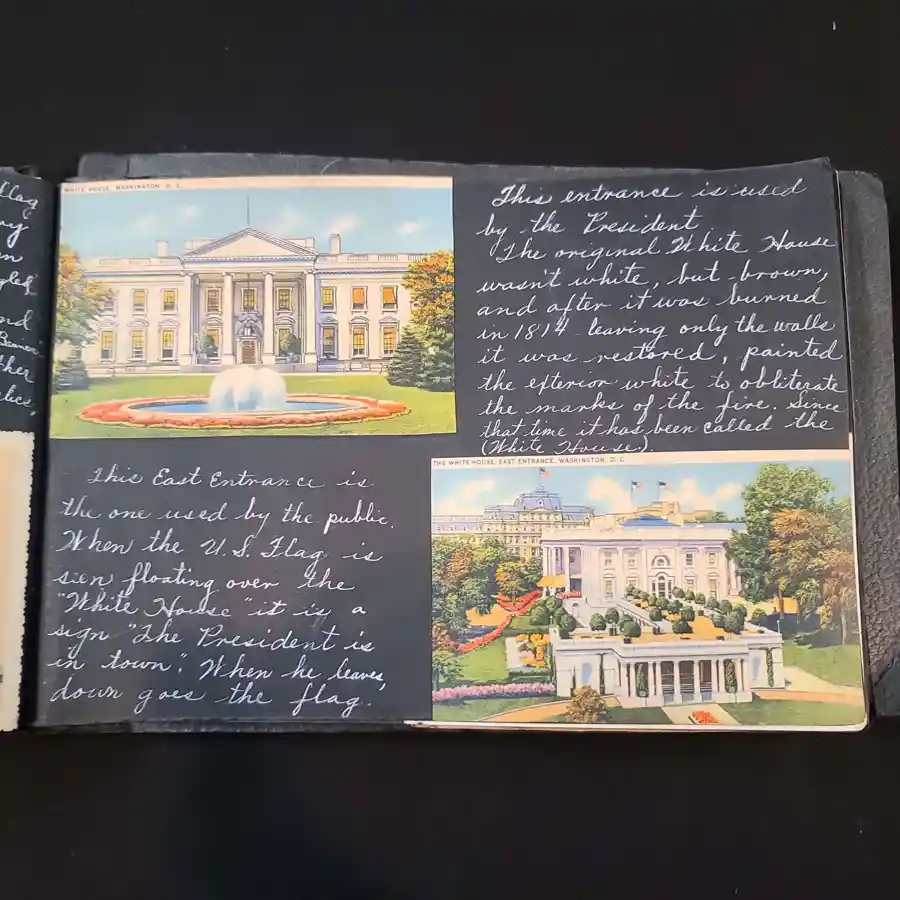 flag
WHITE HOUSE, WASHINGTON, D. C.
This entrance is used
by the President
The original White House
wasn't white, but brown,
and after it was burned
in 1814 leaving only the walls
it was restored, painted
the exterior white to obliterate
the marks of the fire. Since
that time it has been called the
(White House).
This East Entrance is
the one used by the public.
When the U.S. Flag is
sien floating over the
"White House" it is a
sign "The President is
in town". When he leaves,
down goes the flag.
THE WHITE HOUSE, EAST ENTRANCE, WASHINGTON, D. C.